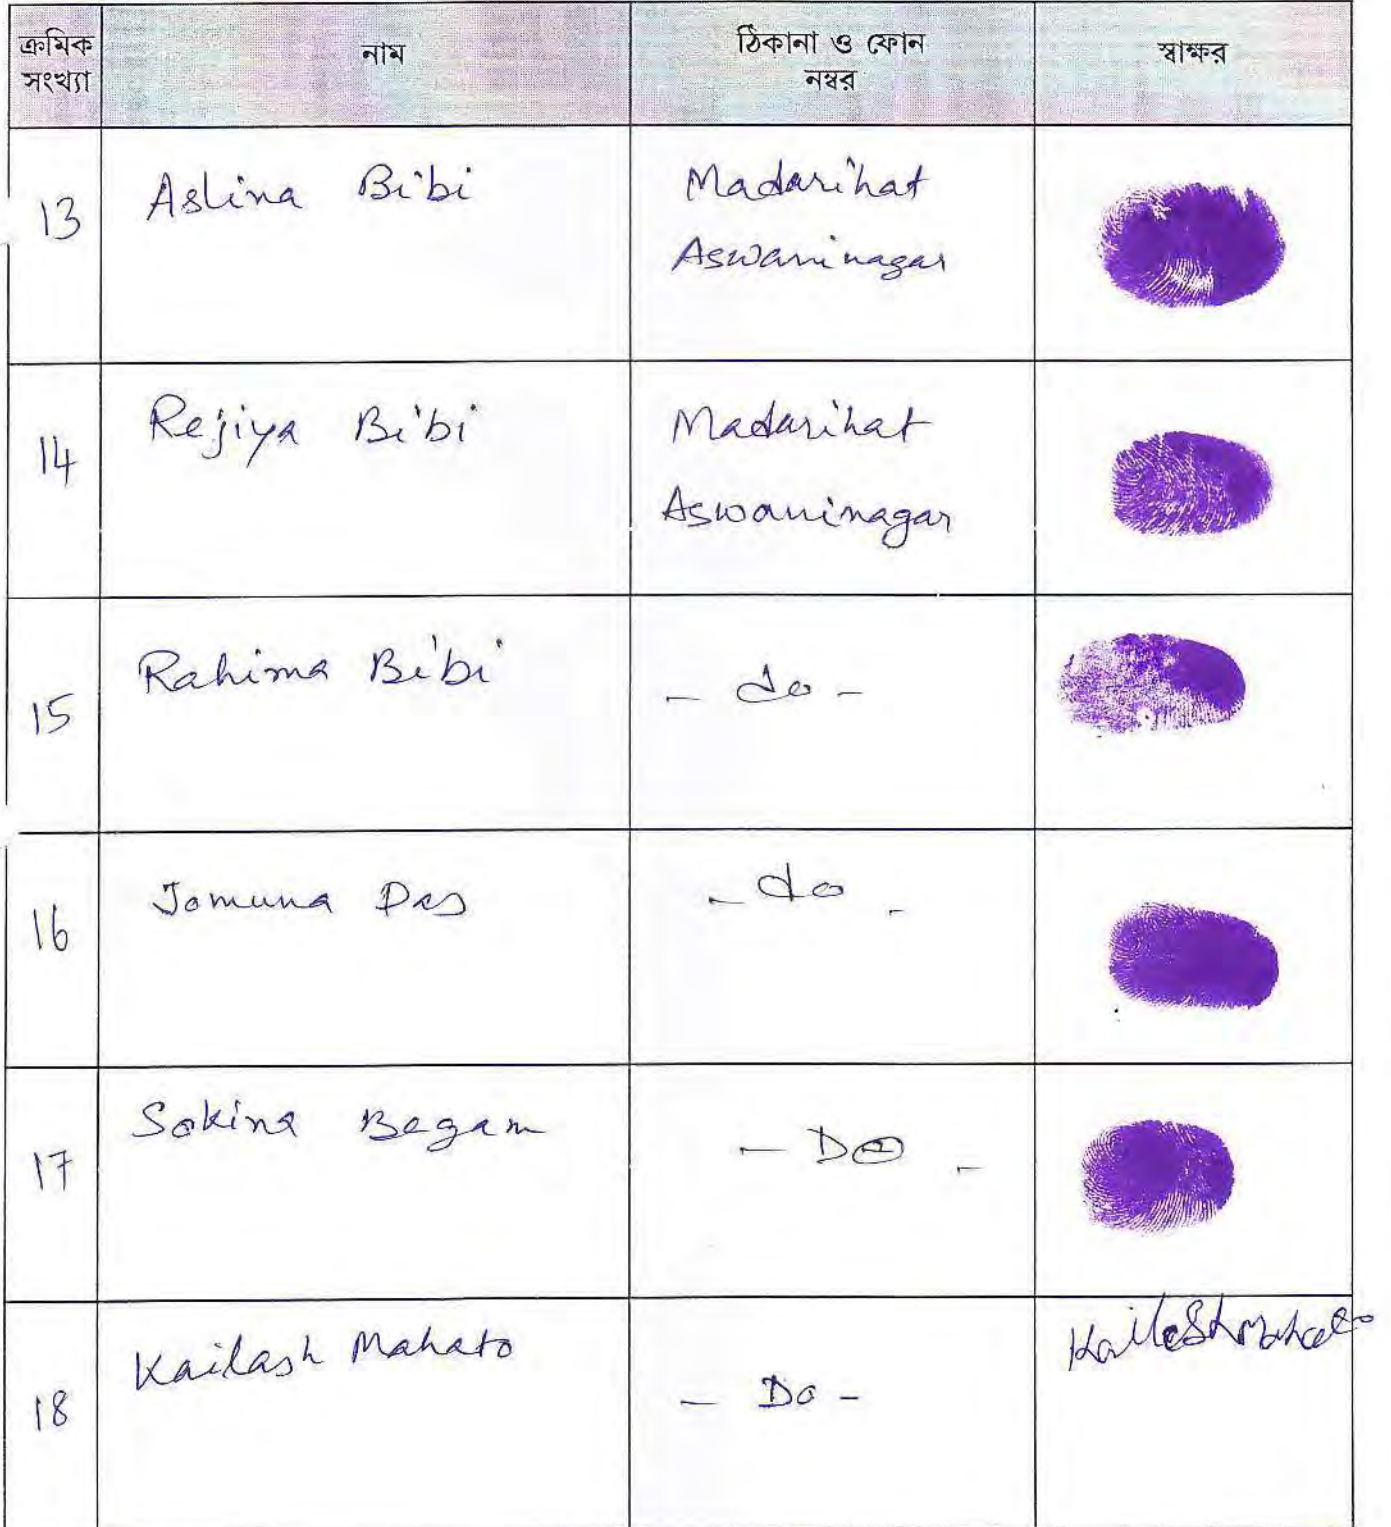 ক্রমিক সংখ্যা নাম ঠিকানা ও ফোন নম্বর স্বাক্ষর
13 Aslina Bibi Madarihat
Aswaninagar
14 Rejiya Bibi Madarihat
Aswaninagar
15 Rahima Bibi - do -
16 Jomuna Das - do -
17 Sakina Begam - Do -
18 Kailash Mahato - Do - Kailash Mahato